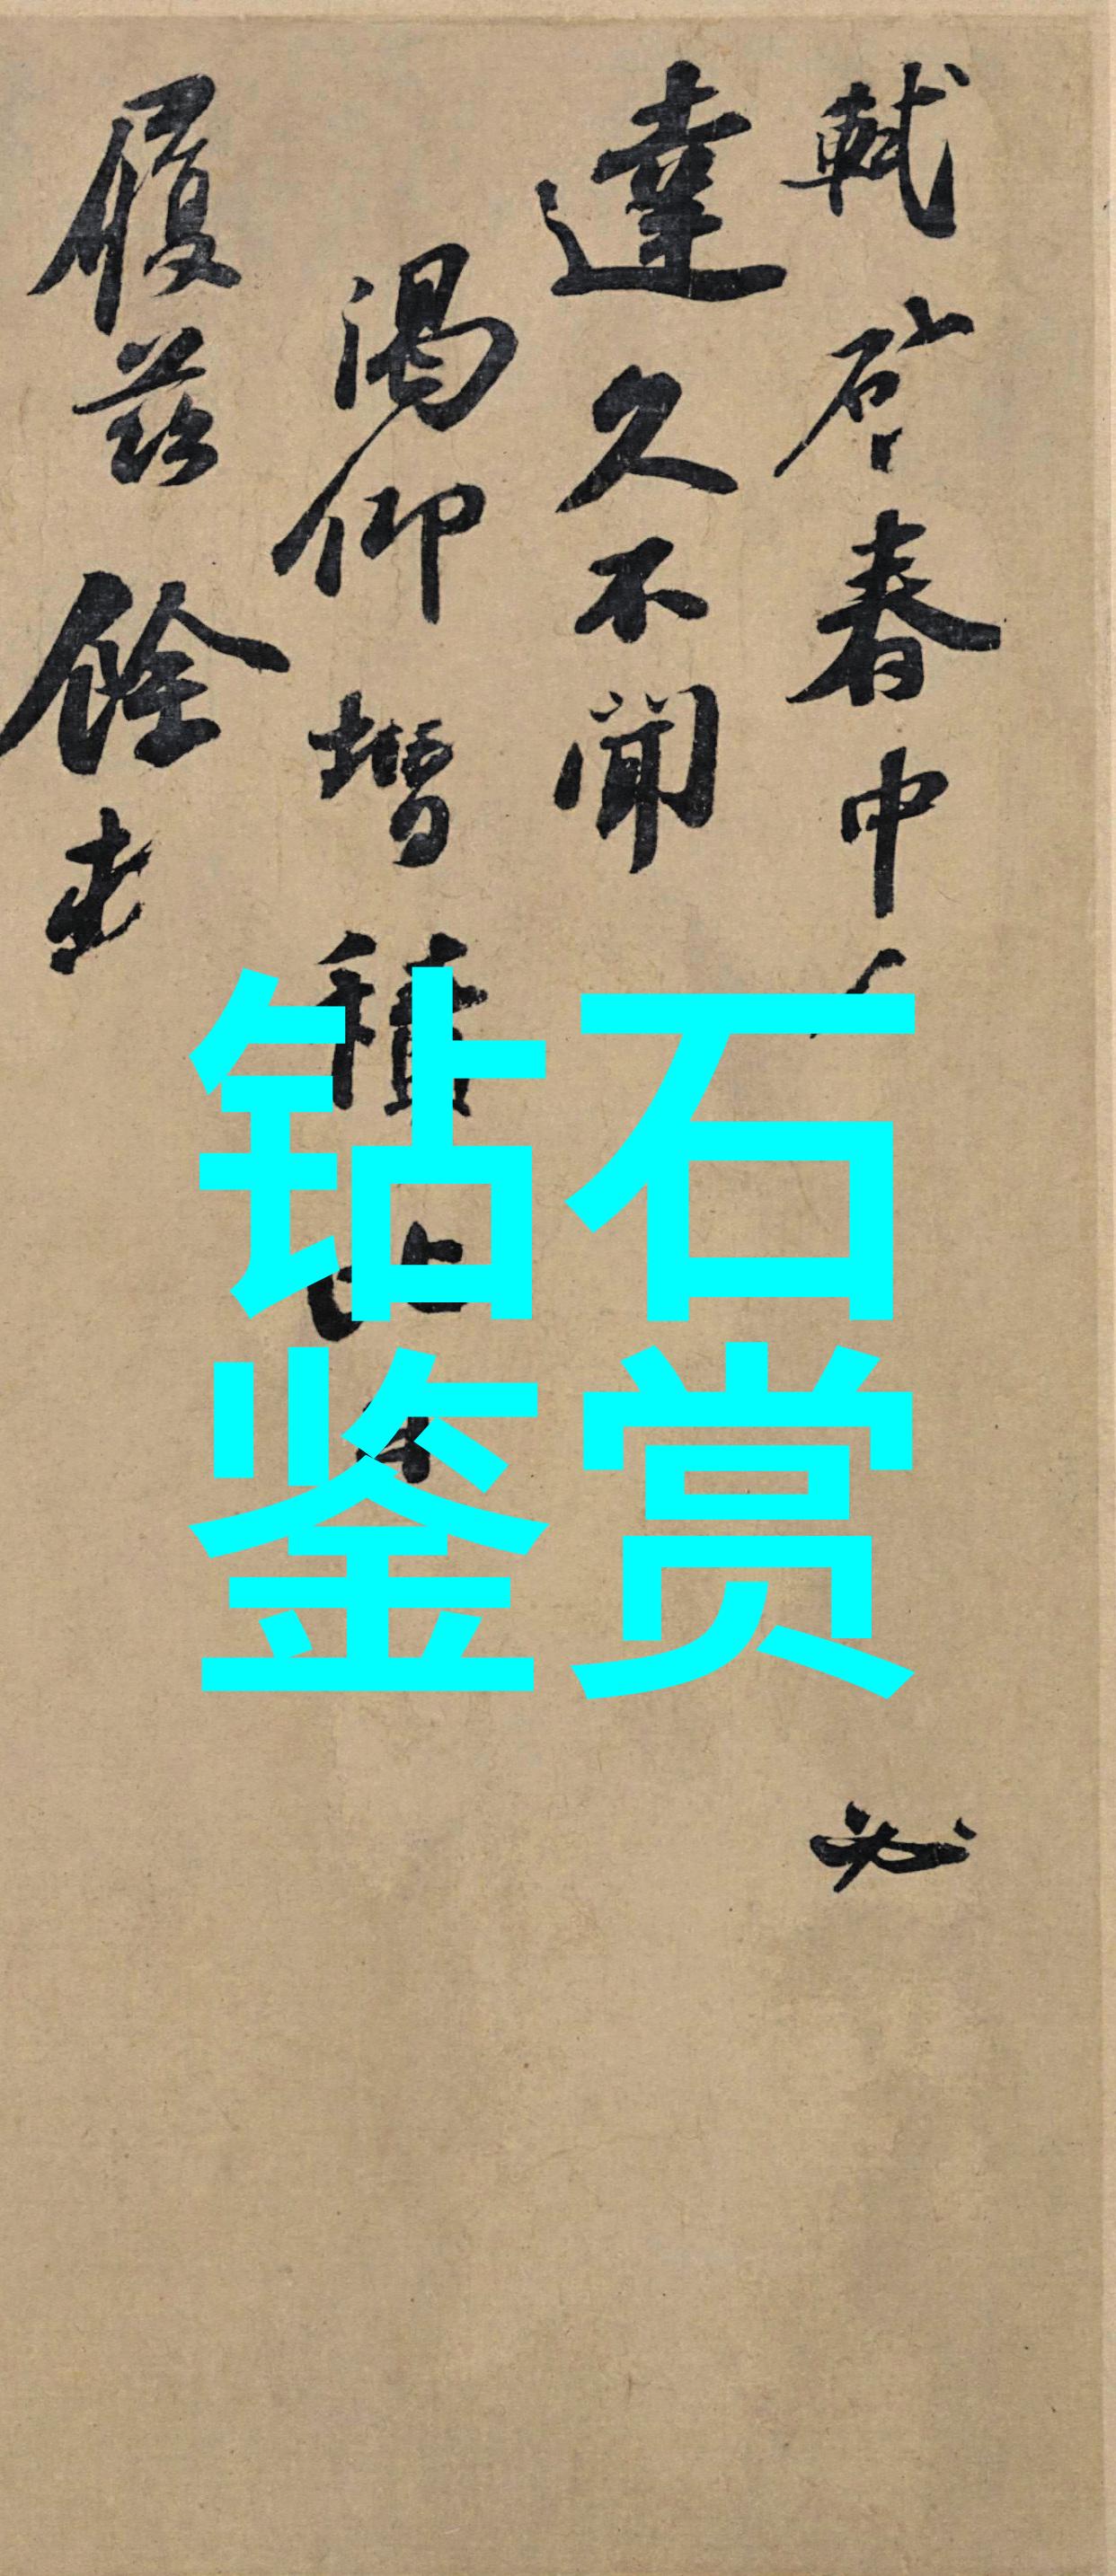 軾啓春中
必
達久不聞
渴仰增積比
履茲餘
钻石
鉴赏